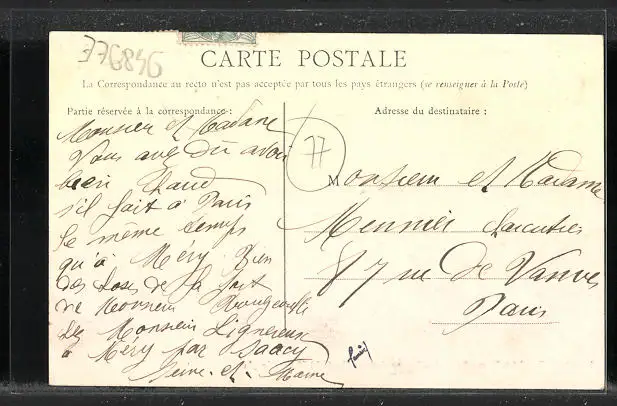 776846
CARTE POSTALE
La Correspondance au recto n'est pas acceptée par tous les pays étrangers (se renseigner à la Poste)
Partie réservée à la correspondance :
Adresse du destinataire :
77
Monsieur et Madame
Vous avez dû avoir
bien Chaud
s'il fait à Paris
le même temps
qu'à Méry Bien
des choses de la part
de Monsieur
Monsieur Lignereux
à Méry par Saacy
Seine-et-Marne
Monsieur et Madame
Meunier charcutier
87 rue de Vanves
Paris